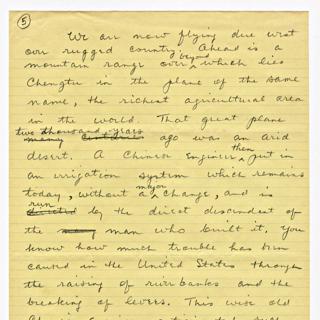 5
We are now flying due west
over rugged country. Ahead is a
mountain range over beyond which lies
Chengtu in the plane of the same
name, the richest agricultural area
in the world. That great plane
two thousand years
many centuries ago was an arid
desert. A Chinese Engineer then put in
an irrigation system which remains
today, without major change, and is
run
directed by the direct descendent of
the man who built it. You
know how much trouble has been
caused in the United States through
the raising of riverbanks and the
breaking of levees. This wise old